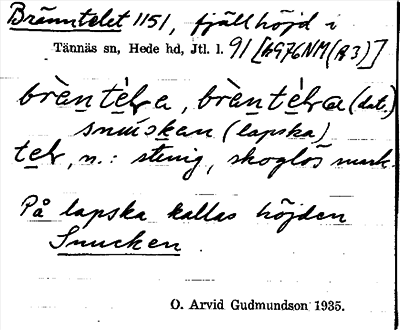 Bränntelet 1151, fjällhöjd i
Tännäs sn, Hede hd, Jtl. l. 91
brèn tèlra, brèn tèlra (dat.)
snuskan (lapska)
n.: stenig, skoglös mark.
På lapska kallas höjden
Snucken.
O. Arvid Gudmundson 1935.